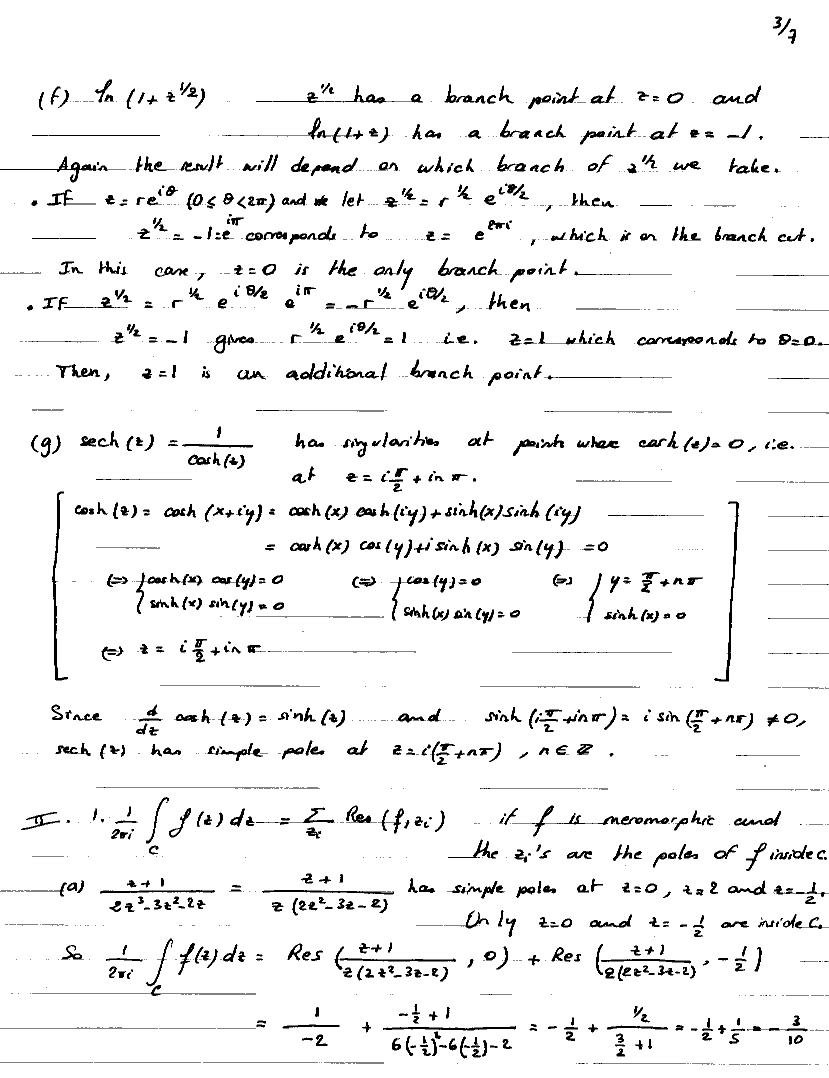 3/7
(f) ln (1+ z^{1/2}) z^{1/2} has a branch point at z=0 and
ln(1+z) has a branch point at z=-1.
Again the result will depend on which branch of z^{1/2} we take.
• If z=re^{iθ} (0≤θ<2π) and we let z^{1/2}=r^{1/2} e^{iθ/2}, then
z^{1/2}=-1=e^{iπ} corresponds to z= e^{2πi}, which is on the branch cut.
In this case, z=0 is the only branch point.
• If z^{1/2} = r^{1/2} e^{iθ/2} e^{iπ} = -r^{1/2} e^{iθ/2}, then
z^{1/2}=-1 gives r^{1/2} e^{iθ/2}=1 i.e. z=1 which corresponds to θ=0.
Then, z=1 is an additional branch point.
(g) sech(z) = 1/cosh(z) has singularities at points where cosh(z)=0, i.e.
at z=iπ/2+inπ.
[ cosh(z)= cosh(x+iy)= cosh(x) cosh(iy)+sinh(x)sinh(iy)
= cosh(x) cos(y)+i sinh(x) sin(y) =0
(=) { cosh(x) cos(y)=0 (=) { cos(y)=0 (=) { y= π/2+nπ
{ sinh(x) sin(y)=0 { sinh(x) sin(y)=0 { sinh(x)=0
(=) z= iπ/2+inπ ]
Since d/dz cosh(z)=sinh(z) and sinh(iπ/2+inπ)= i sin(π/2+nπ) ≠0,
sech(z) has simple poles at z=i(π/2+nπ), n∈ℤ.
II. 1. 1/2πi ∫_C f(z)dz = Σ_{z_i} Res(f,z_i) if f is meromorphic and
the z_i's are the poles of f inside C.
(a) z+1/2z^3-3z^2-2z = z+1/z(2z^2-3z-2) has simple poles at z=0, z=2 and z=-1/2.
Only z=0 and z=-1/2 are inside C.
So 1/2πi ∫_C f(z)dz= Res (z+1/z(2z^2-3z-2), 0) + Res (z+1/z(2z^2-3z-2), -1/2)
= 1/-2 + -1/2+1/6(-1/2)^2-6(-1/2)-2 = -1/2 + 1/2/3/2+1 = -1/2+1/5=-3/10